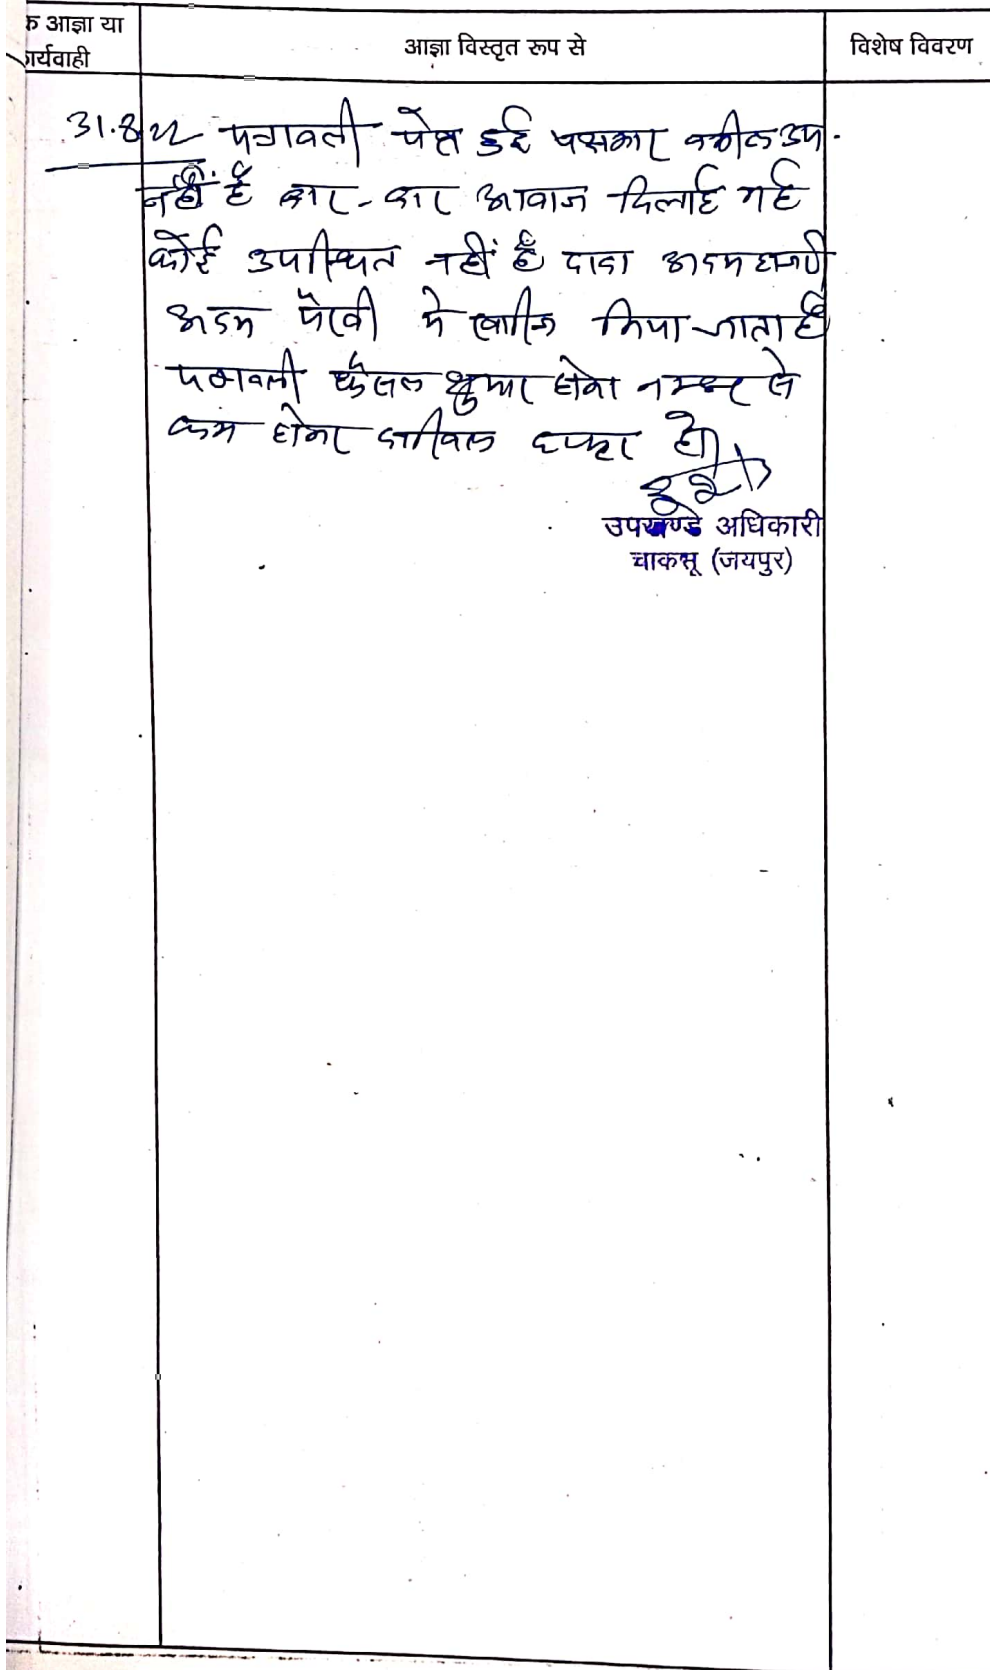 क आज्ञा या
ार्यवाही
आज्ञा विस्तृत रूप से
विशेष विवरण
31.8.22 पत्रावली पेश हुई पक्षकार वकील उप.
नहीं है बार-बार आवाज दिलाई गई
कोई उपस्थित नहीं है दावा अदम हाजरी
अदम पैरवी मे खारिज किया जाता है
पत्रावली फैसल शुमार होकर नम्बर से
कम होकर दाखिल दफ्तर हो।
उपखण्ड अधिकारी
चाकसू (जयपुर)